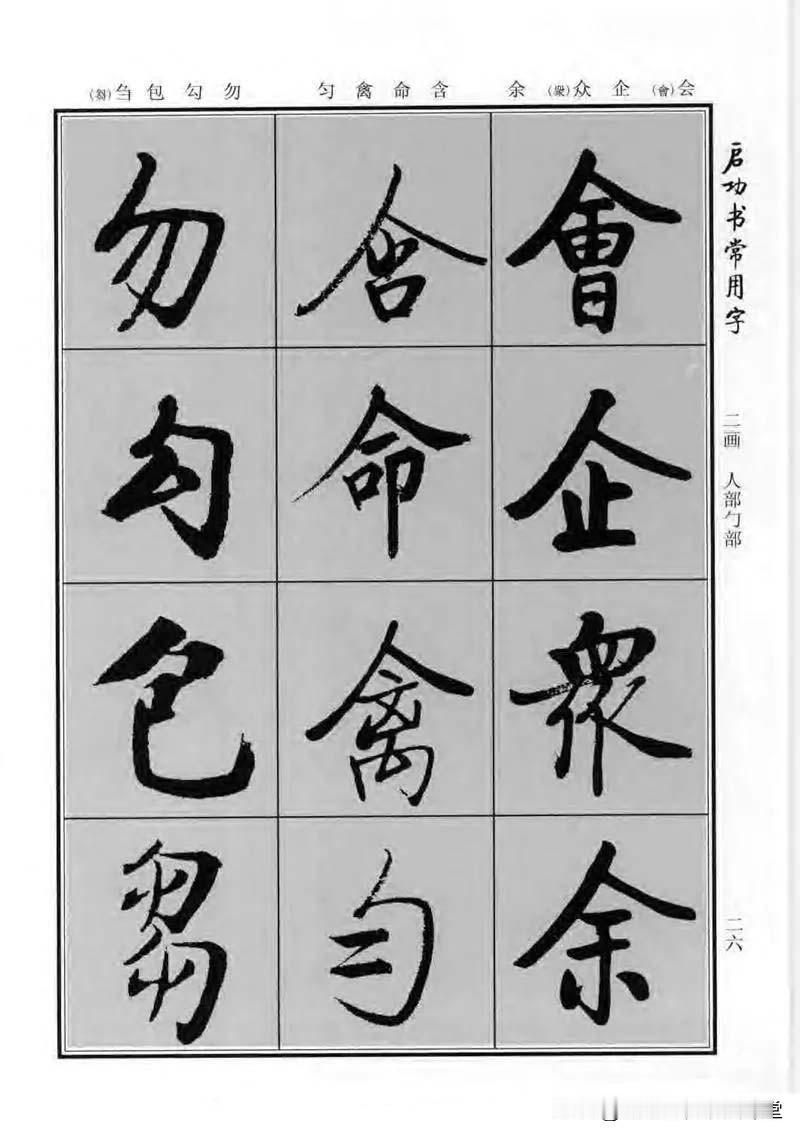 会(會)企众(衆)余
含命禽匀
勿勾包刍(芻)
會企衆余
含命禽匀
勿勾包芻
启功书常用字
二画 人部勹部
二六